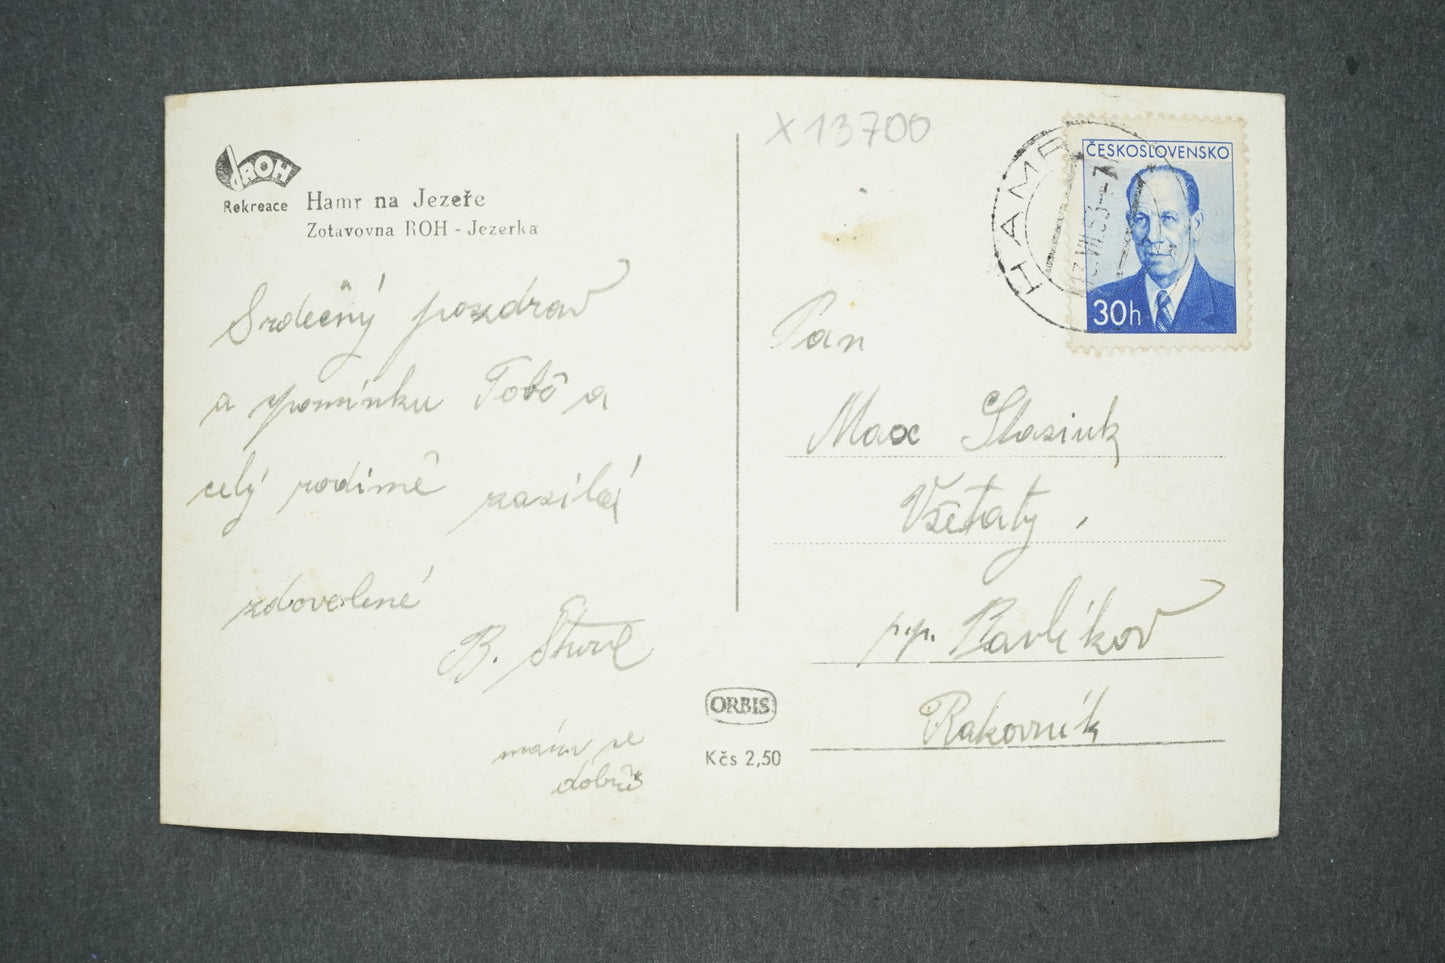 ROH
Rekreace
Hamr na Jezeře
Zotavovna ROH - Jezerka
Srdečný pozdrav
a vpomínku Tobě a
celý rodině zasílá
zdovolené
B.
mám se
dobře
ORBIS
Kčs 2,50
X 13700
HAMR
13.VII.53--7
ČESKOSLOVENSKO
30h
Pan
Max Stasiuk
Všetaty,
p.p. Pavlíkov
Rakovník